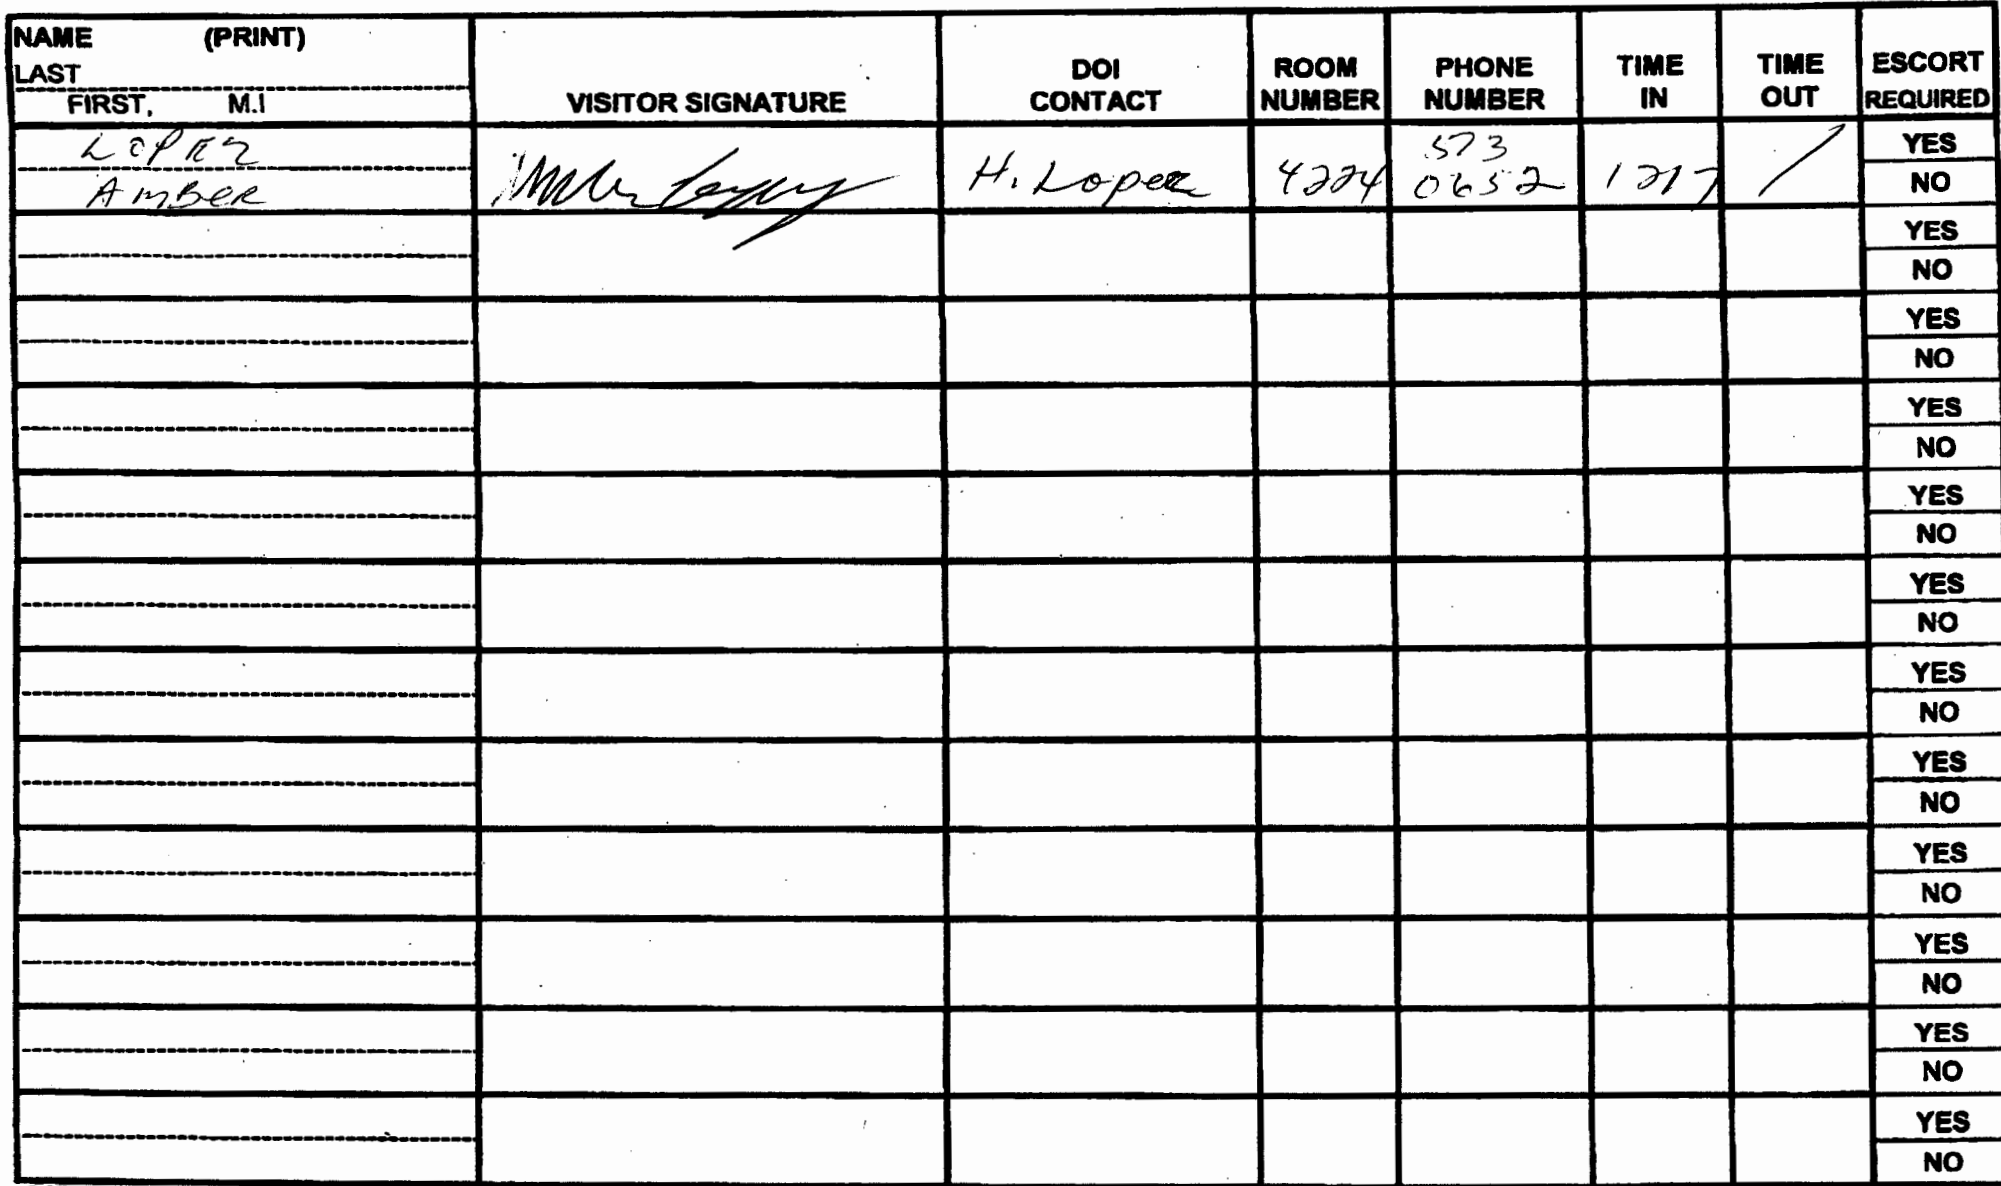 NAME (PRINT)
LAST
FIRST, M.I
VISITOR SIGNATURE
DOI
CONTACT
ROOM
NUMBER
PHONE
NUMBER
TIME
IN
TIME
OUT
ESCORT
REQUIRED
LOPEZ
AMBER
H. Lopez
4224
573
0652
1217
/
YES
NO
YES
NO
YES
NO
YES
NO
YES
NO
YES
NO
YES
NO
YES
NO
YES
NO
YES
NO
YES
NO
YES
NO